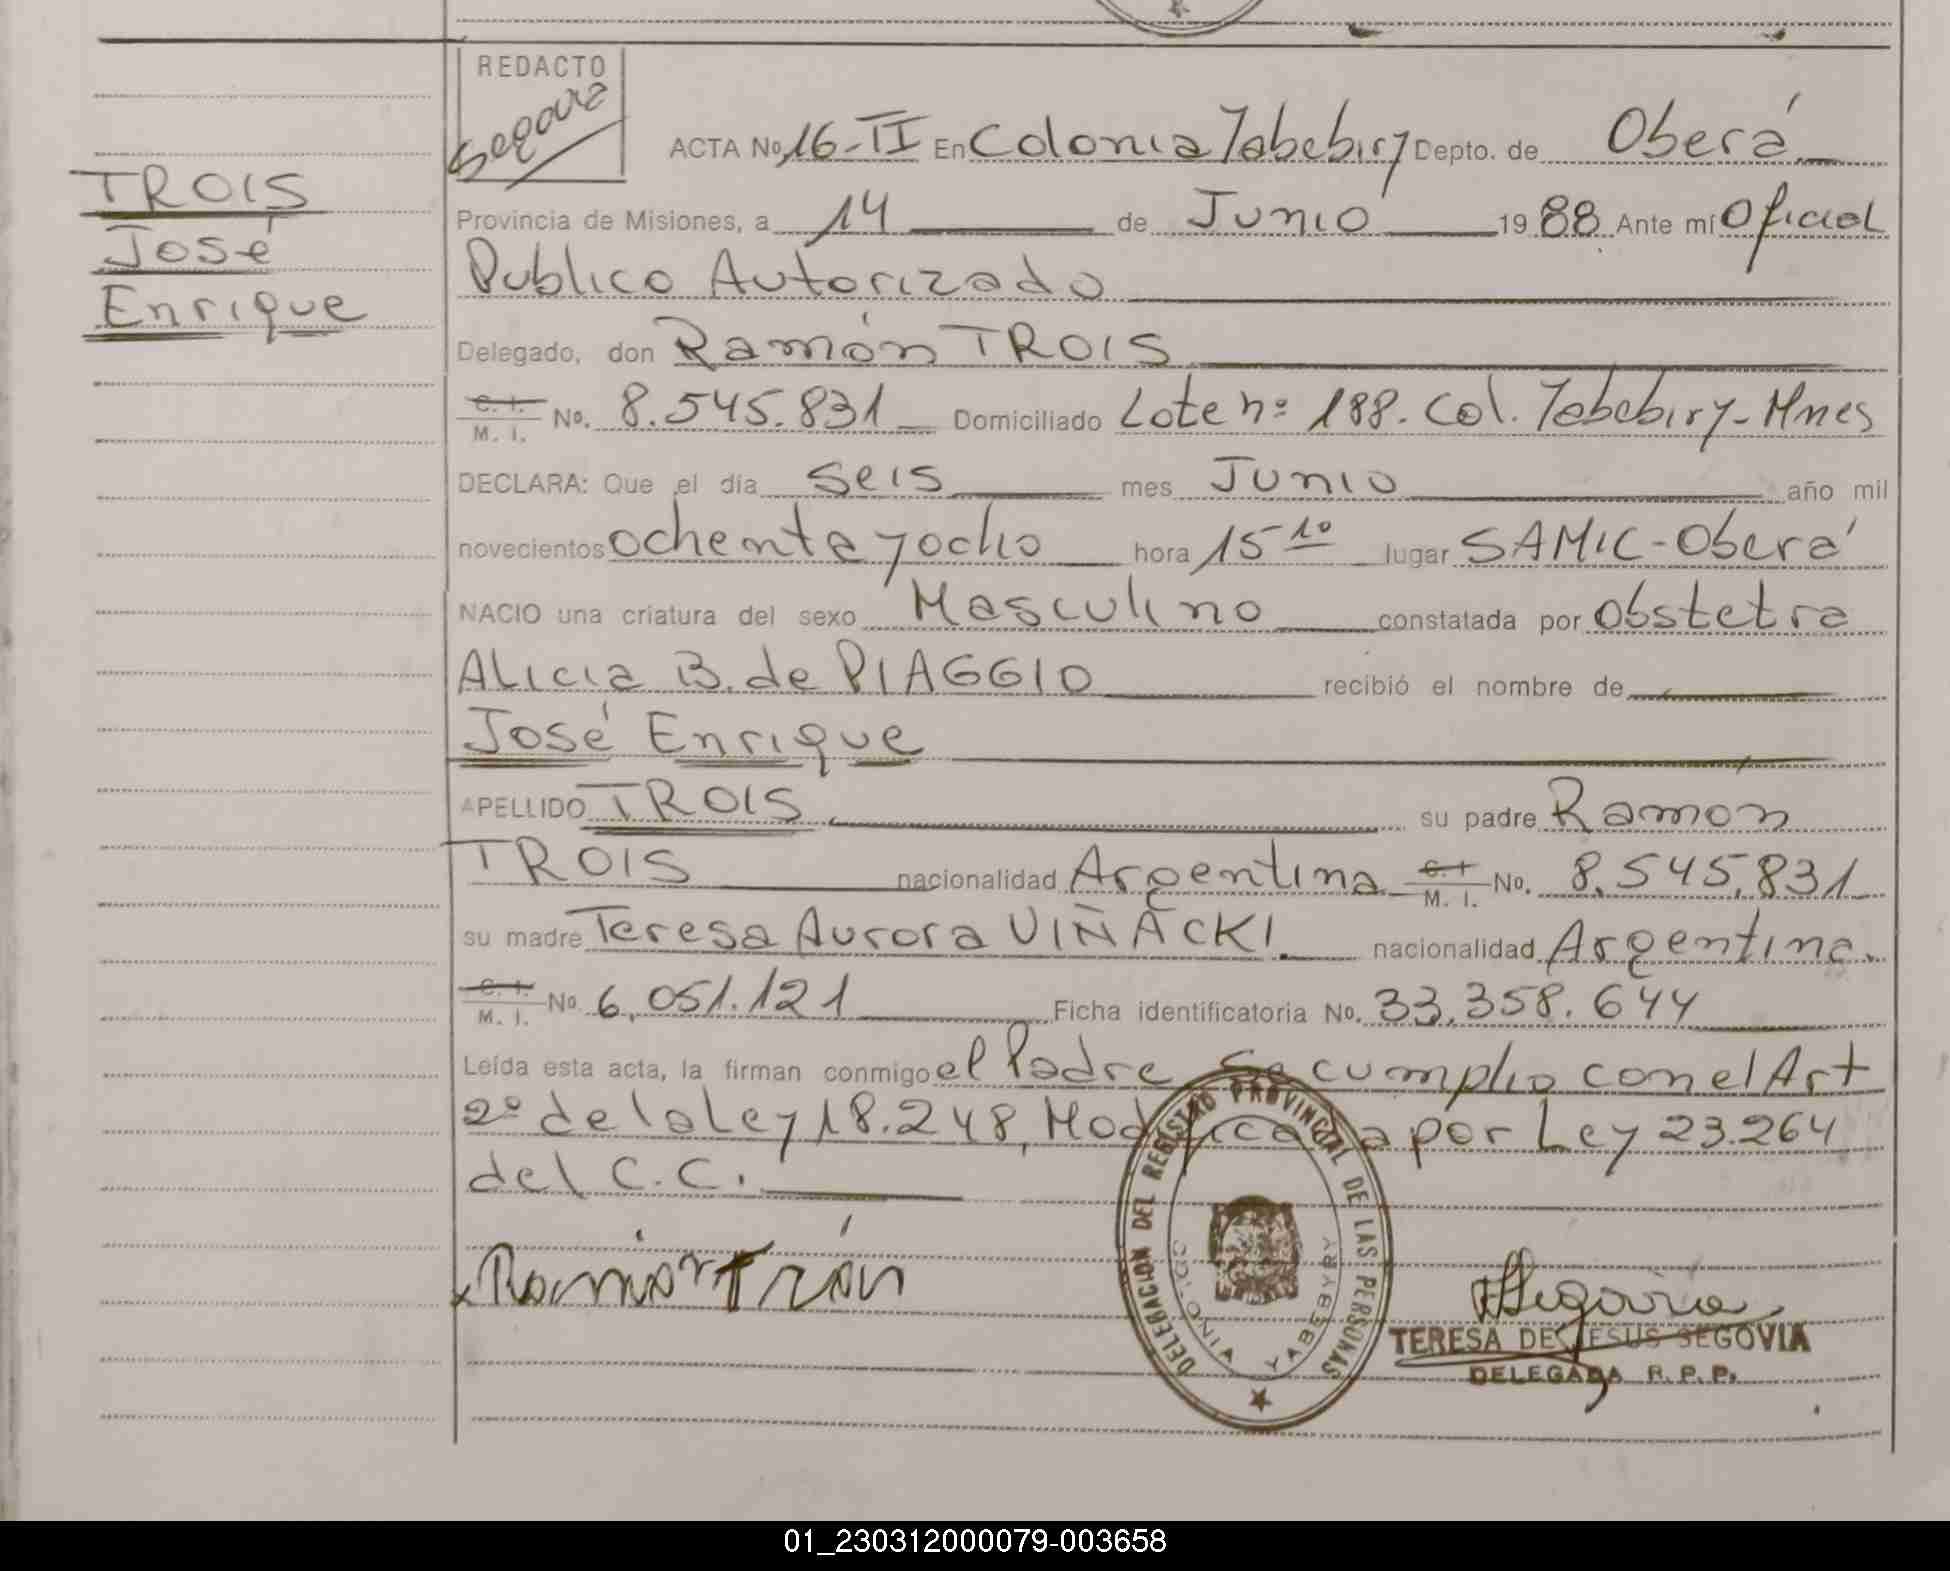 REDACTO
Segovia
ACTA No. 16-II En Colonia Yabebiry Depto. de Oberá
TROIS
José
Enrique
Provincia de Misiones, a 14 de Junio 1988 Ante mí Oficial
Publico Autorizado
Delegado, don Ramón TROIS
C. I. M. I. No. 8.545.831 Domiciliado Lote nº 188. Col. Yabebiry - Mnes
DECLARA: Que el día seis mes Junio año mil
novecientos ochenta y ocho hora 15-10 lugar SAMIC - Oberá
NACIO una criatura del sexo Masculino constatada por Obstetra
Alicia B. de PIAGGIO recibió el nombre de
José Enrique
APELLIDO TROIS su padre Ramon
TROIS nacionalidad Argentina C. I M. I. No. 8.545.831
su madre Teresa Aurora VIÑACKI. nacionalidad Argentina.
C. I. M. I. No 6.051.121 Ficha identificatoria No. 33.358.644
Leída esta acta, la firman conmigo el Padre Se cumplio con el Art
2º de la Ley 18.248, Modificada por Ley 23.264
del C.C.
DELEGACION DEL REGISTRO PROVINCIAL DE LAS PERSONAS
COLONIA YABEBYRY
Segovia
TERESA DE JESUS SEGOVIA
DELEGADA R. P. P.
01_230312000079-003658